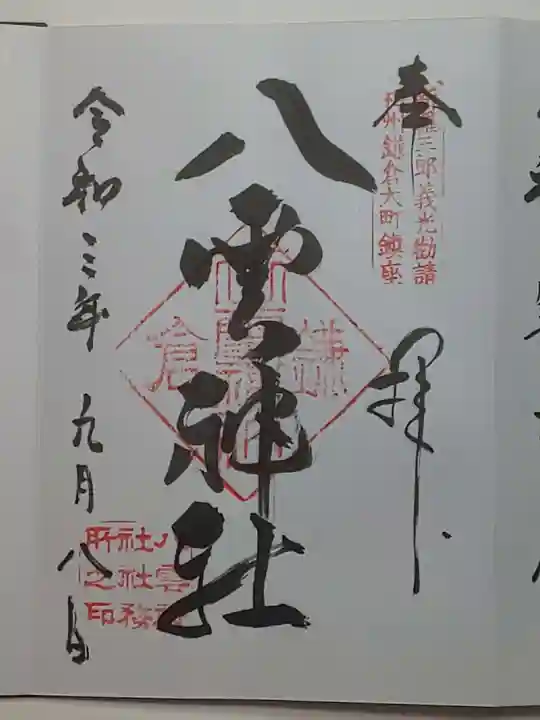 奉拝
新羅三郎義光勧請
相州鎌倉大町鎮座
八雲神社
鎌倉
令和三年九月八日
八雲神
社社務
所之印